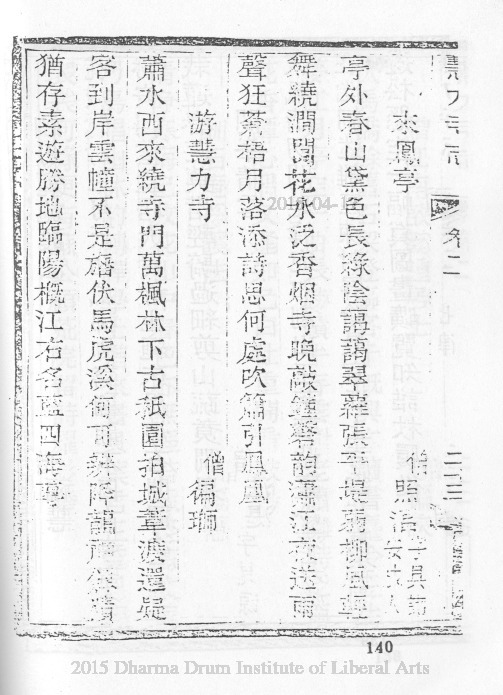 慧力寺志 卷二 二三
來鳳亭 僧照浩
亭外春山黛色長綠陰藹藹翠蘿張平堤弱柳風輕
舞繞澗閒花水泛香烟寺晚敲鐘磬韵瀟江夜送雨
聲狂蒼梧月落添詩思何處吹簫引鳳凰
游慧力寺 僧
蕭水西來繞寺門萬楓林下古祇園拍城葦渡還疑
客到岸雲幢不是旛伏馬虎溪何可耕降龍
猶存素遊勝地臨陽概江右名藍四海尊
140
2015 Dharma Drum Institute of Liberal Arts